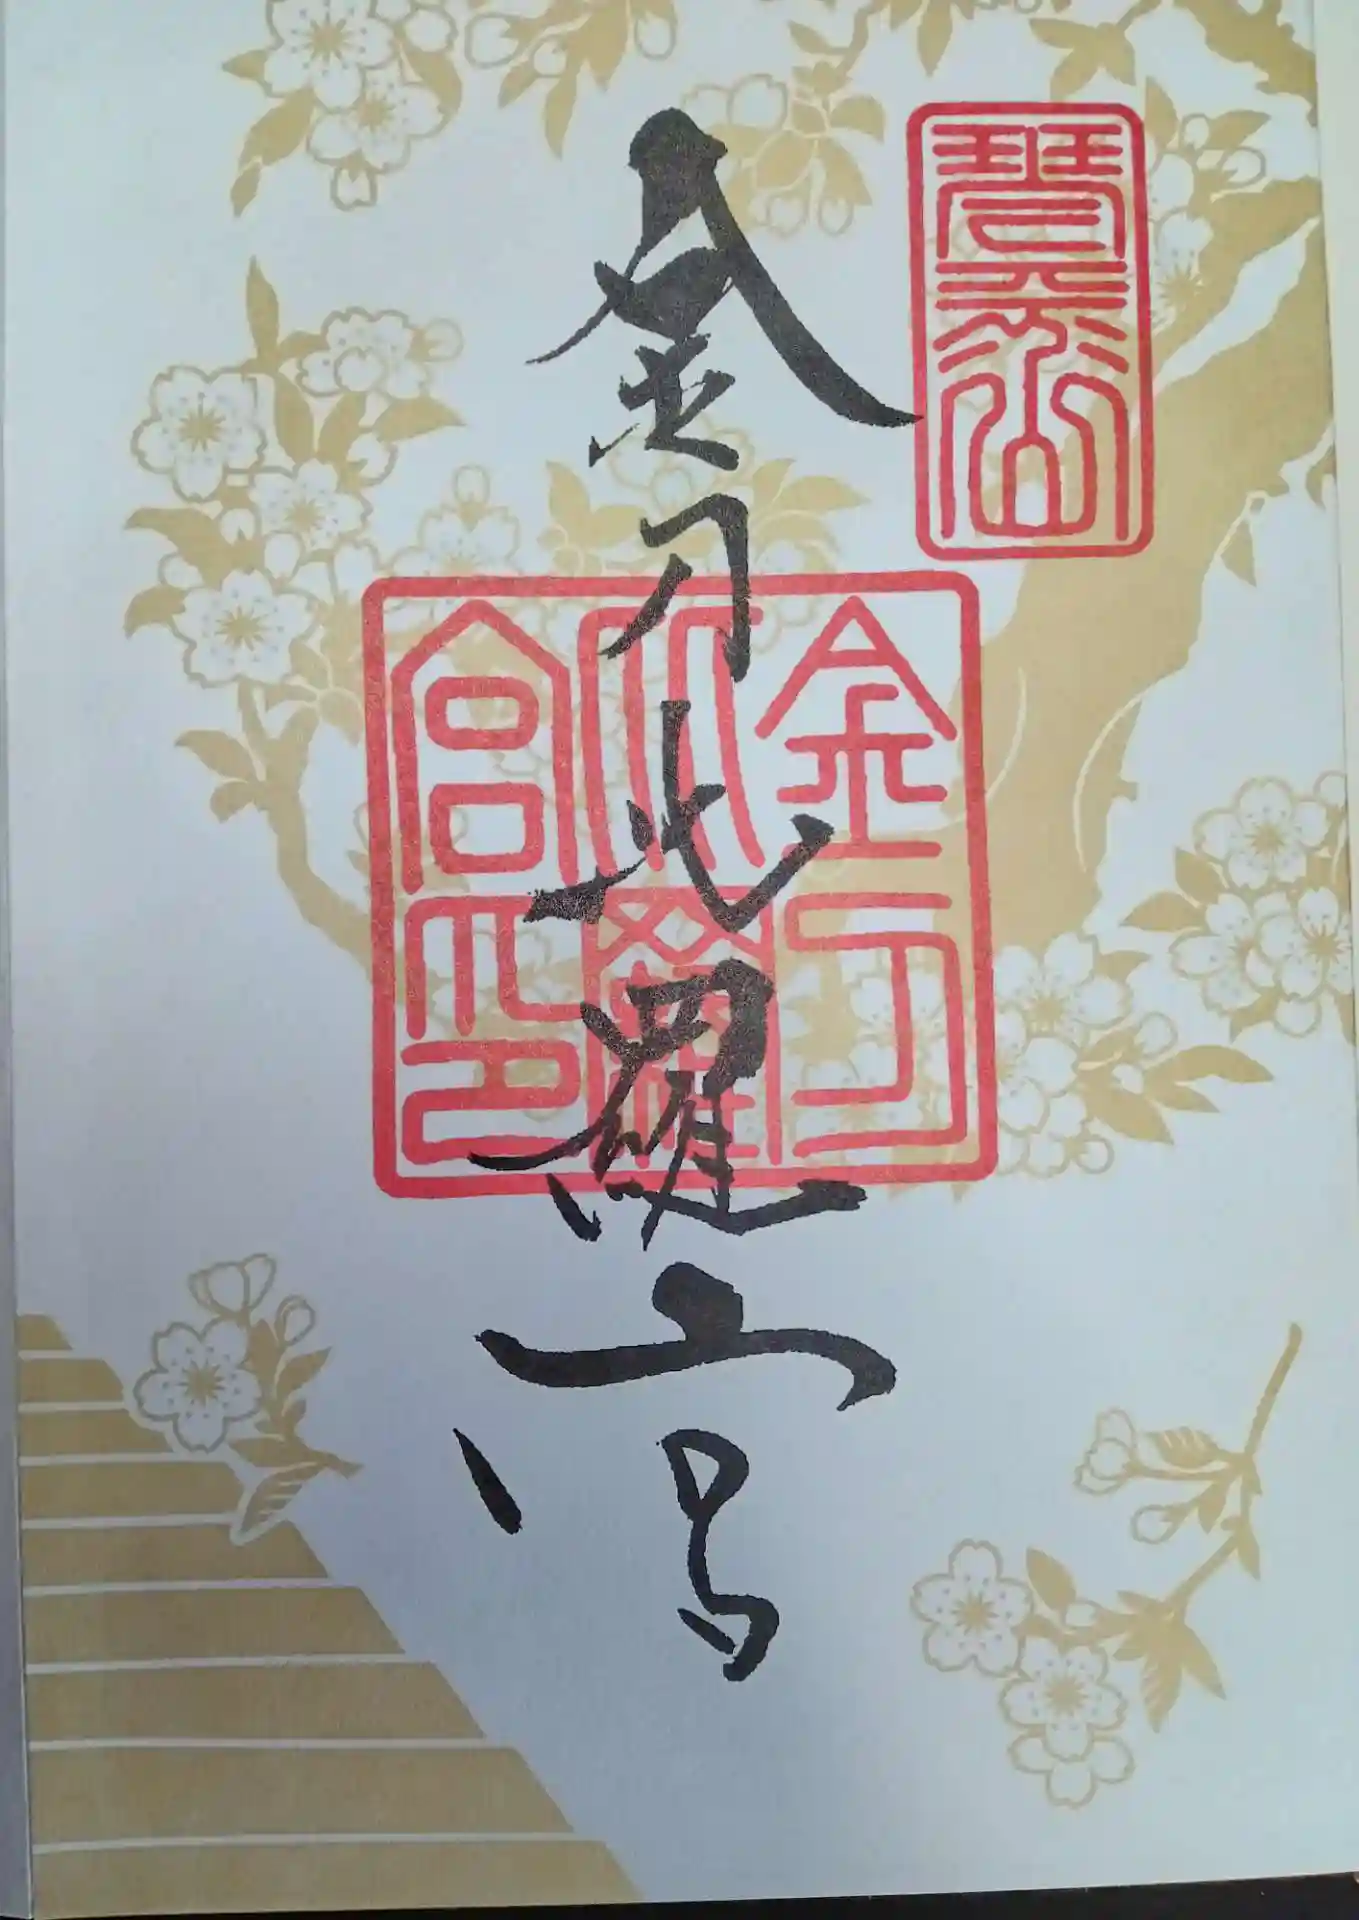 琴平山
金刀比羅宮
金刀比羅宮印